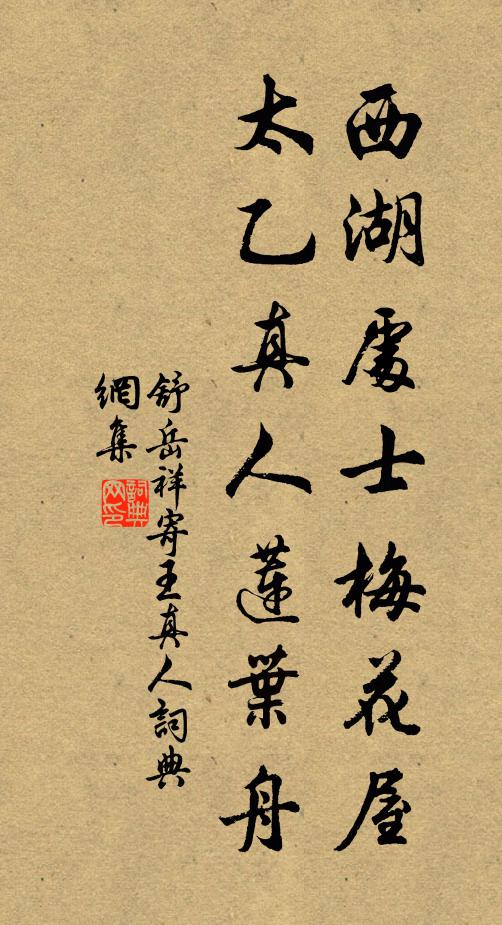 西湖處士梅花屋
太乙真人蓮葉舟
舒岳祥寄王真人詞典
網集
詞典
网印